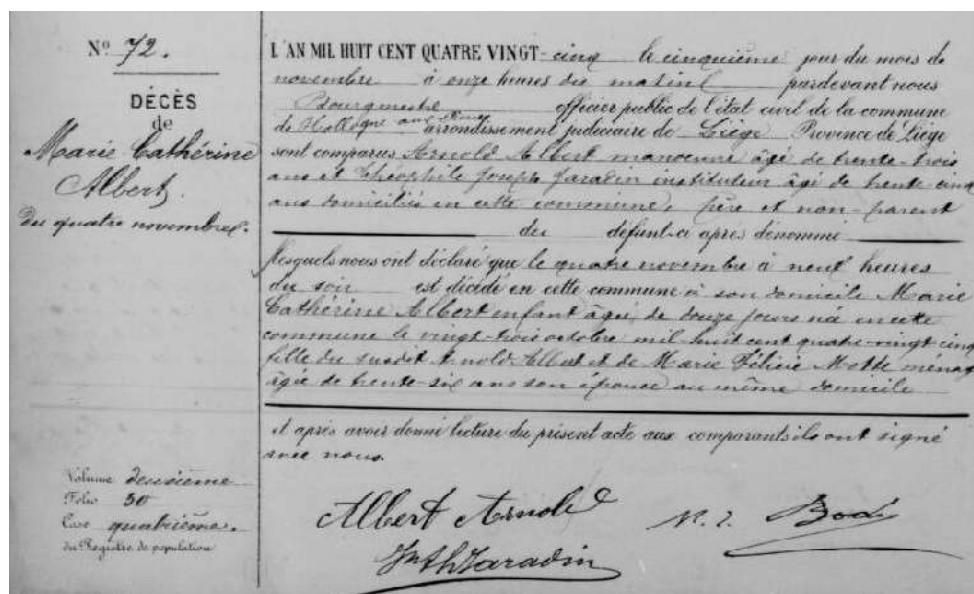 Nº 72.
DÉCÈS
de
Marie Cathérine
Albert
du quatre novembre.
Volume deuxième
Folio 50
Case quatrième.
du Registre de population
L'AN MIL HUIT CENT QUATRE VINGT-cinq le cinquième jour du mois de
novembre à onze heures du matin pardevant nous
Bourgmestre officier public de l'état civil de la commune
de Hollogne aux Pierres arrondissement judiciaire de Liège Province de Liège
sont comparus Arnold Albert manoeuvre âgé de trente-trois
ans et Théophile Joseph Jaradin instituteur âgé de trente cinq
ans domiciliés en cette commune, père et non-parent
du défunt ci après dénommé
lesquels nous ont déclaré que le quatre novembre à neuf heures
du soir est décédé en cette commune à son domicile Marie
Cathérine Albert enfant âgée de douze jours née en cette
commune le vingt-trois octobre mil huit cent quatre-vingt cinq
fille du susdit Arnold Albert et de Marie Félicie Motte ménag
âgée de trente-six ans son épouse au même domicile
et après avoir donné lecture du présent acte aux comparants ils ont signé
avec nous.
Albert Arnold
Jaradin